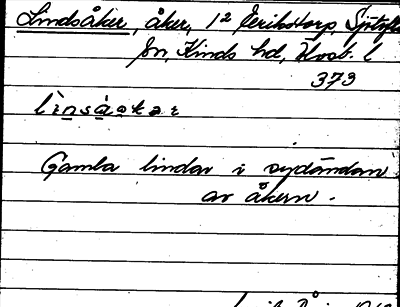 Lindsåker, åker, 1² Erikstorp, Sjötofta
sn, Kinds hd, Älvsb. l
373
lìnsåakar
Gamla lindar i sydändan
av åkern.